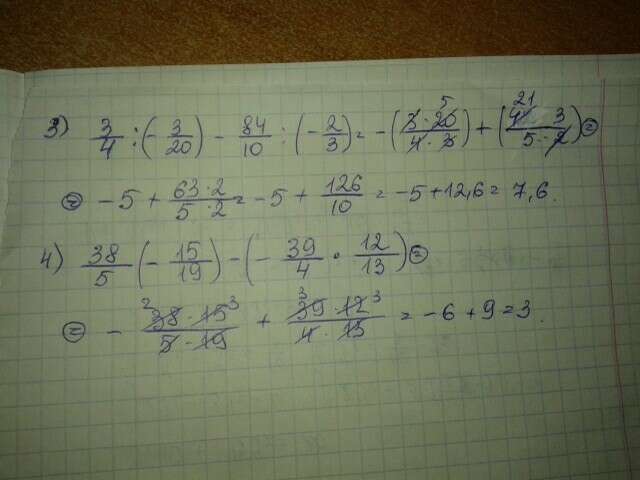 3) 3/4 : (- 3/20) - 84/10 : (- 2/3) = - (3 · 20 5 / 4 · 3) + (21 42 · 3 / 5 · 2) =
= - 5 + 63 · 2 / 5 · 2 = - 5 + 126/10 = - 5 + 12,6 = 7,6.
4) 38/5 (- 15/19) - (- 39/4 · 12/13) =
= - 2 38 · 15 3 / 5 · 19 + 3 39 · 12 3 / 4 · 13 = - 6 + 9 = 3.